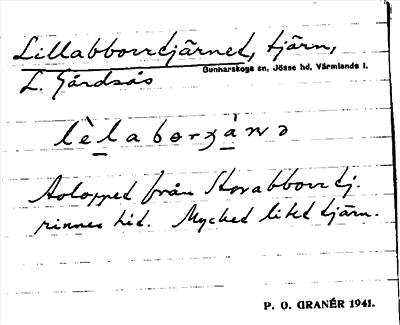 Lillabborrtjärnet, tjärn,
Gunnarskogs sn, Jösse hd, Värmlands l.
L. Gårdsås
Avloppet från Storabborrtj.
rinner hit. Mycket litet tjärn.
P. O. GRANÉR 1941.